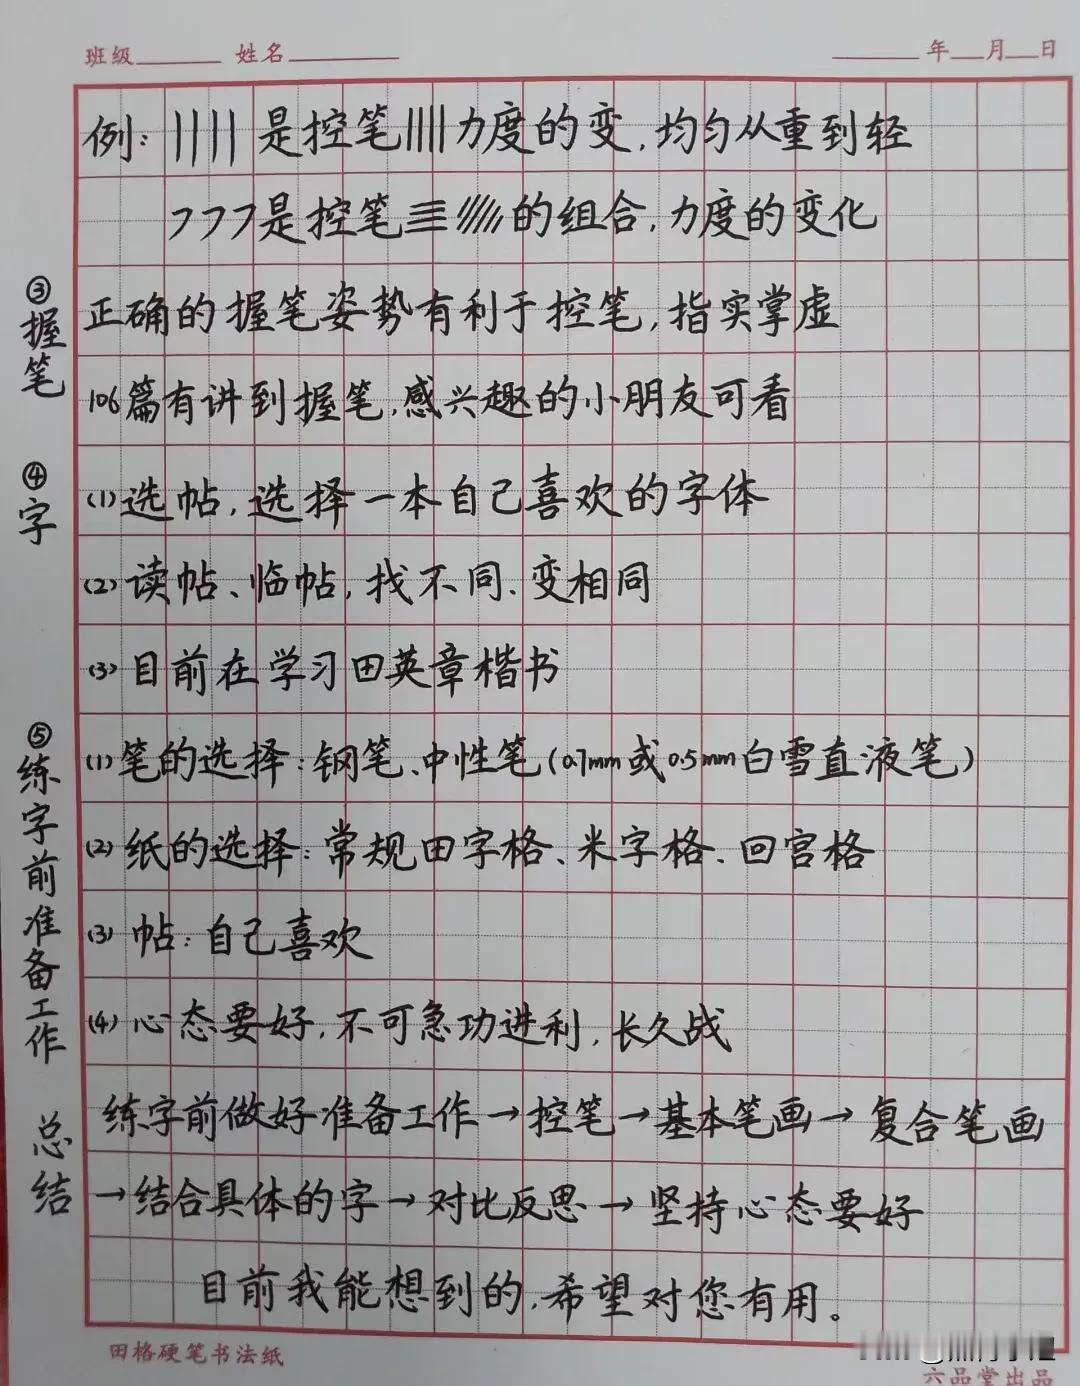 班级 姓名 年 月 日
例: 是控笔 力度的变,均匀从重到轻
是控笔 的组合,力度的变化
③握笔
正确的握笔姿势有利于控笔,指实掌虚
106篇有讲到握笔,感兴趣的小朋友可看
④字
(1)选帖,选择一本自己喜欢的字体
(2)读帖、临帖,找不同、变相同
(3)目前在学习田英章楷书
⑤练字前准备工作
(1)笔的选择:钢笔、中性笔(0.7mm或0.5mm白雪直液笔)
(2)纸的选择:常规田字格、米字格、回宫格
(3)帖:自己喜欢
(4)心态要好,不可急功进利,长久战
总结
练字前做好准备工作→控笔→基本笔画→复合笔画
→结合具体的字→对比反思→坚持心态要好
目前我能想到的,希望对您有用。
田格硬笔书法纸
六品堂出品